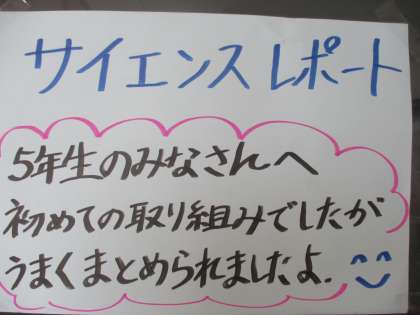 サイエンスレポート
5年生のみなさんへ
初めての取り組みでしたが
うまくまとめられましたよ.